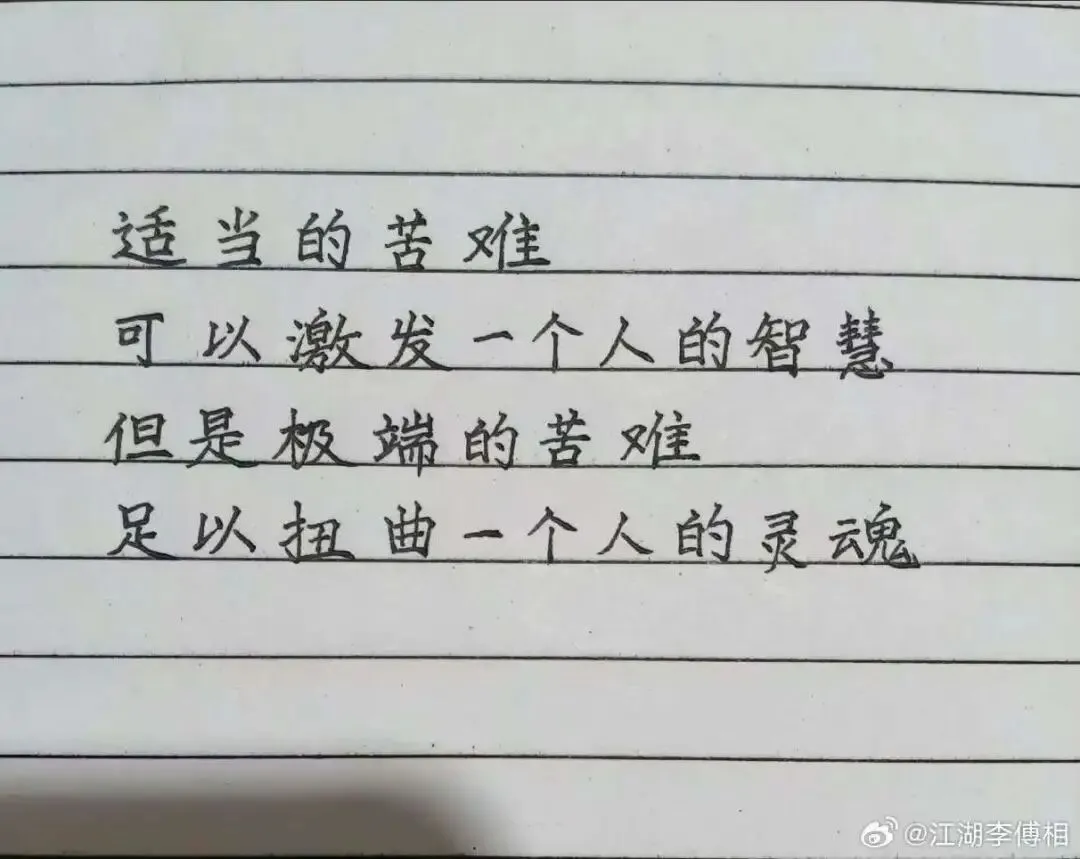 适当的苦难
可以激发一个人的智慧
但是极端的苦难
足以扭曲一个人的灵魂
@江湖李傅相